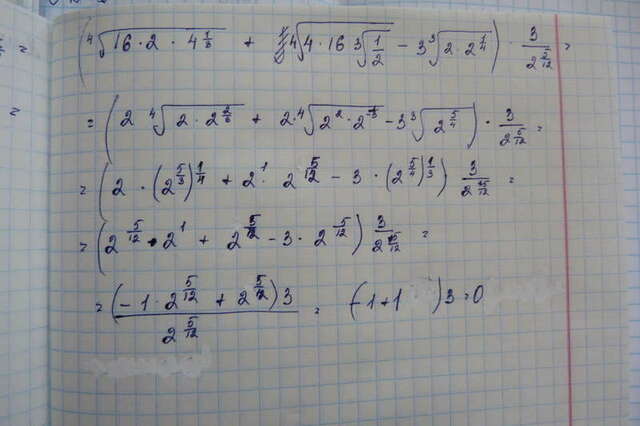 (⁴√(16·2 · 4^(1/3)) + ⁴√(4·16 ³√(1/2)) − 3 ³√(2·2^(1/4))) · 3/2^(5/12) =
= (2 ⁴√(2·2^(2/6)) + 2·⁴√(2²·2^(-1/3)) − 3 ³√(2^(5/4))) · 3/2^(5/12) =
= (2 · (2^(5/3))^(1/4) + 2^1 · 2^(5/12) − 3 · (2^(5/4))^(1/3)) 3/2^(5/12) =
= (2^(5/12) · 2^1 + 2^(5/12) − 3 · 2^(5/12)) 3/2^(5/12) =
= (−1 · 2^(5/12) + 2^(5/12))3/2^(5/12) = (−1+1)3=0